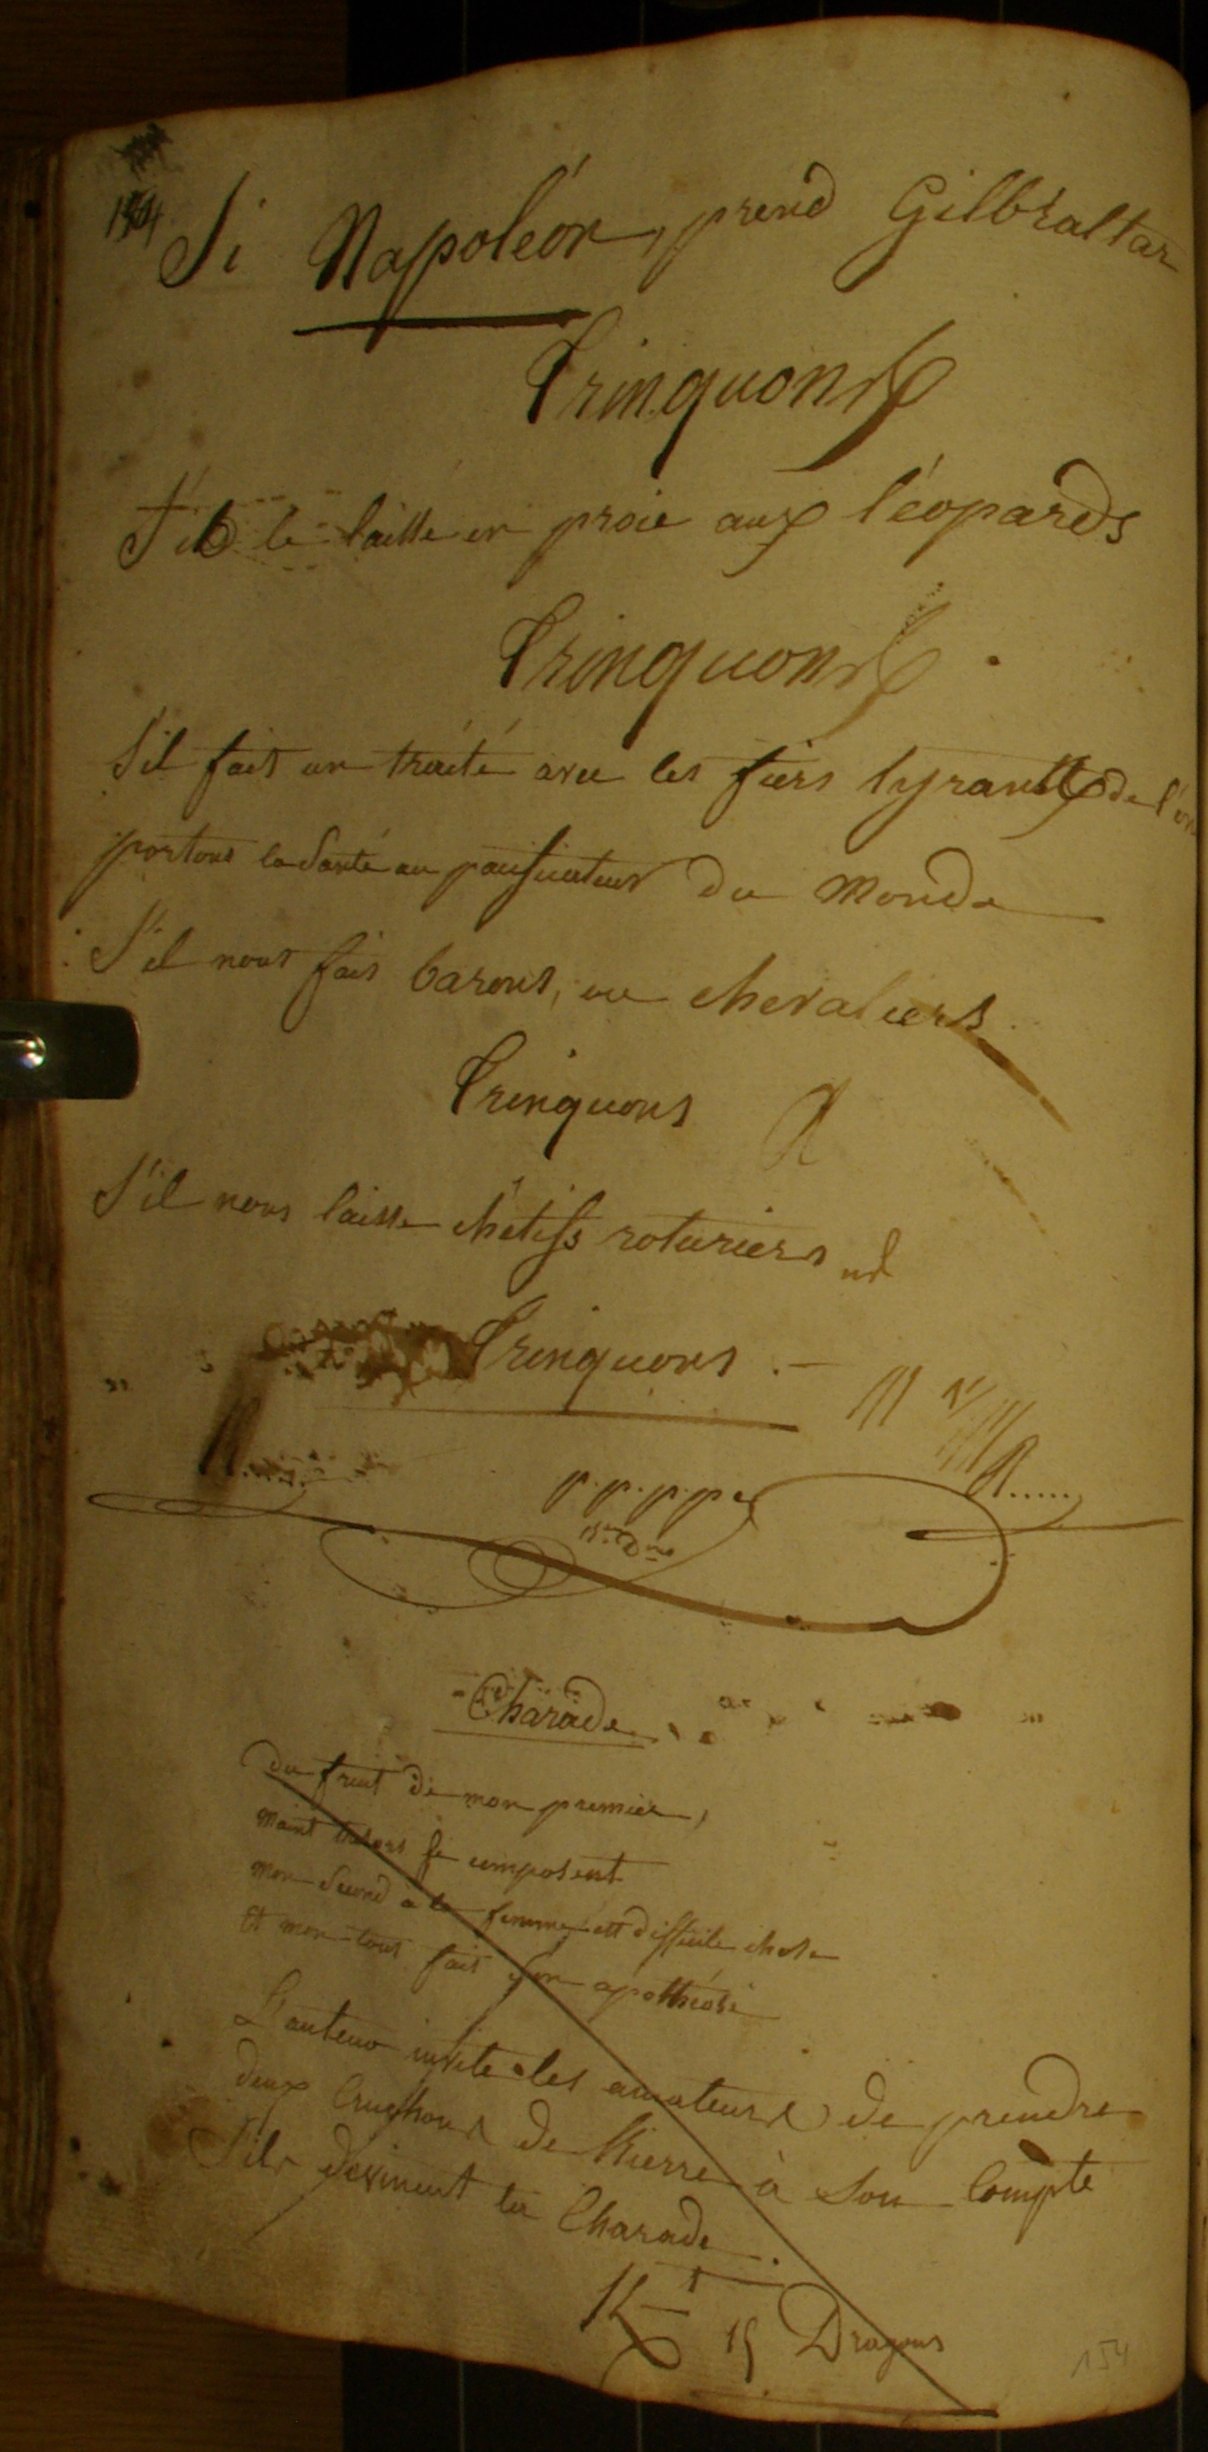 154
Si Napoléon, prend Gilbraltar
Trinquons
S'il le laisse en proie aux léopards
Trinquons.
S'il fait un traité avec les fiers tyrans de l'on
portons la santé au pacificateur du Monde
S'il nous fais barons, ou chevaliers.
Trinquons
S'il nous laisse chétifs roturiers
Trinquons.
p.p.p.p.
Charade.
du fruit de mon premier,
Maint se composent
mon second a la femme est difficile chose
Et mon tout fait son apothéose
L'auteur invite les amateurs de prendre
deux Cruchons de Bierre à son Compte
S'ils devinent la Charade.
15 Dragons
154